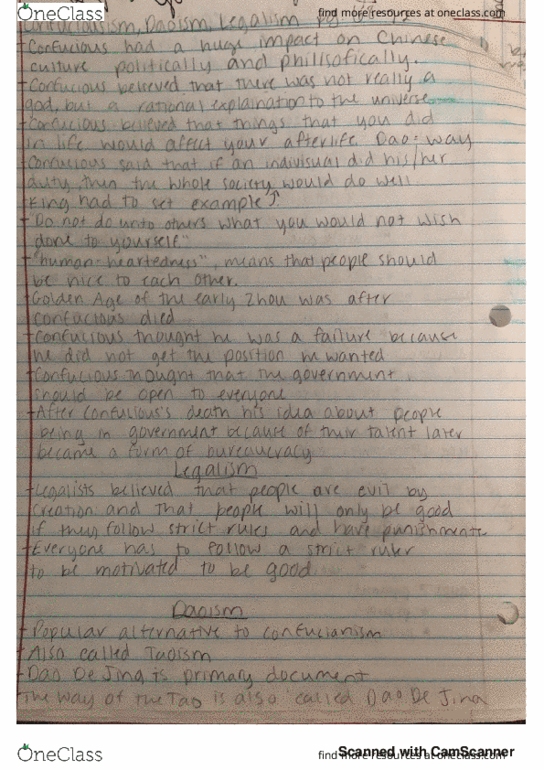 OneClass
find more resources at oneclass.com
Confucious​ism, Daoism, Legalism
-Confucious had a huge impact on Chinese
culture politically and phillsofically.
-Confucious believed that there was not really a
god, but a rational explaination to the universe
-Confucious believed that things that you did
in life would affect your afterlife. Dao=way
-Confucious said that if an indivisual did his/her
duty, then the whole society would do well
King had to set example↑
-"Do not do unto others what you would not wish
done to yourself"
-"human-heartedness", means that people should
be nice to each other.
-Golden Age of the early Zhou was after
confuctous died
-Confucious thought he was a failure because
he did not get the position he wanted
-Confucious thought that the government
should be open to everyone
-After Confucious's death his idea about people
being in government because of their talent later
became a form of bureaucracy
Legalism
-Legalists believed that people are evil by
creation and that people will only be good
if they follow strict rules and have punishments
-Everyone has to follow a strict ruler
to be motivated to be good
Daoism
-Popular alternative to confucianism
-Also called Taoism
-Dao De Jing is primary document
-The way of the Tao is also called Dao De Jing
OneClass
find more resources at oneclass.com
Scanned with CamScanner